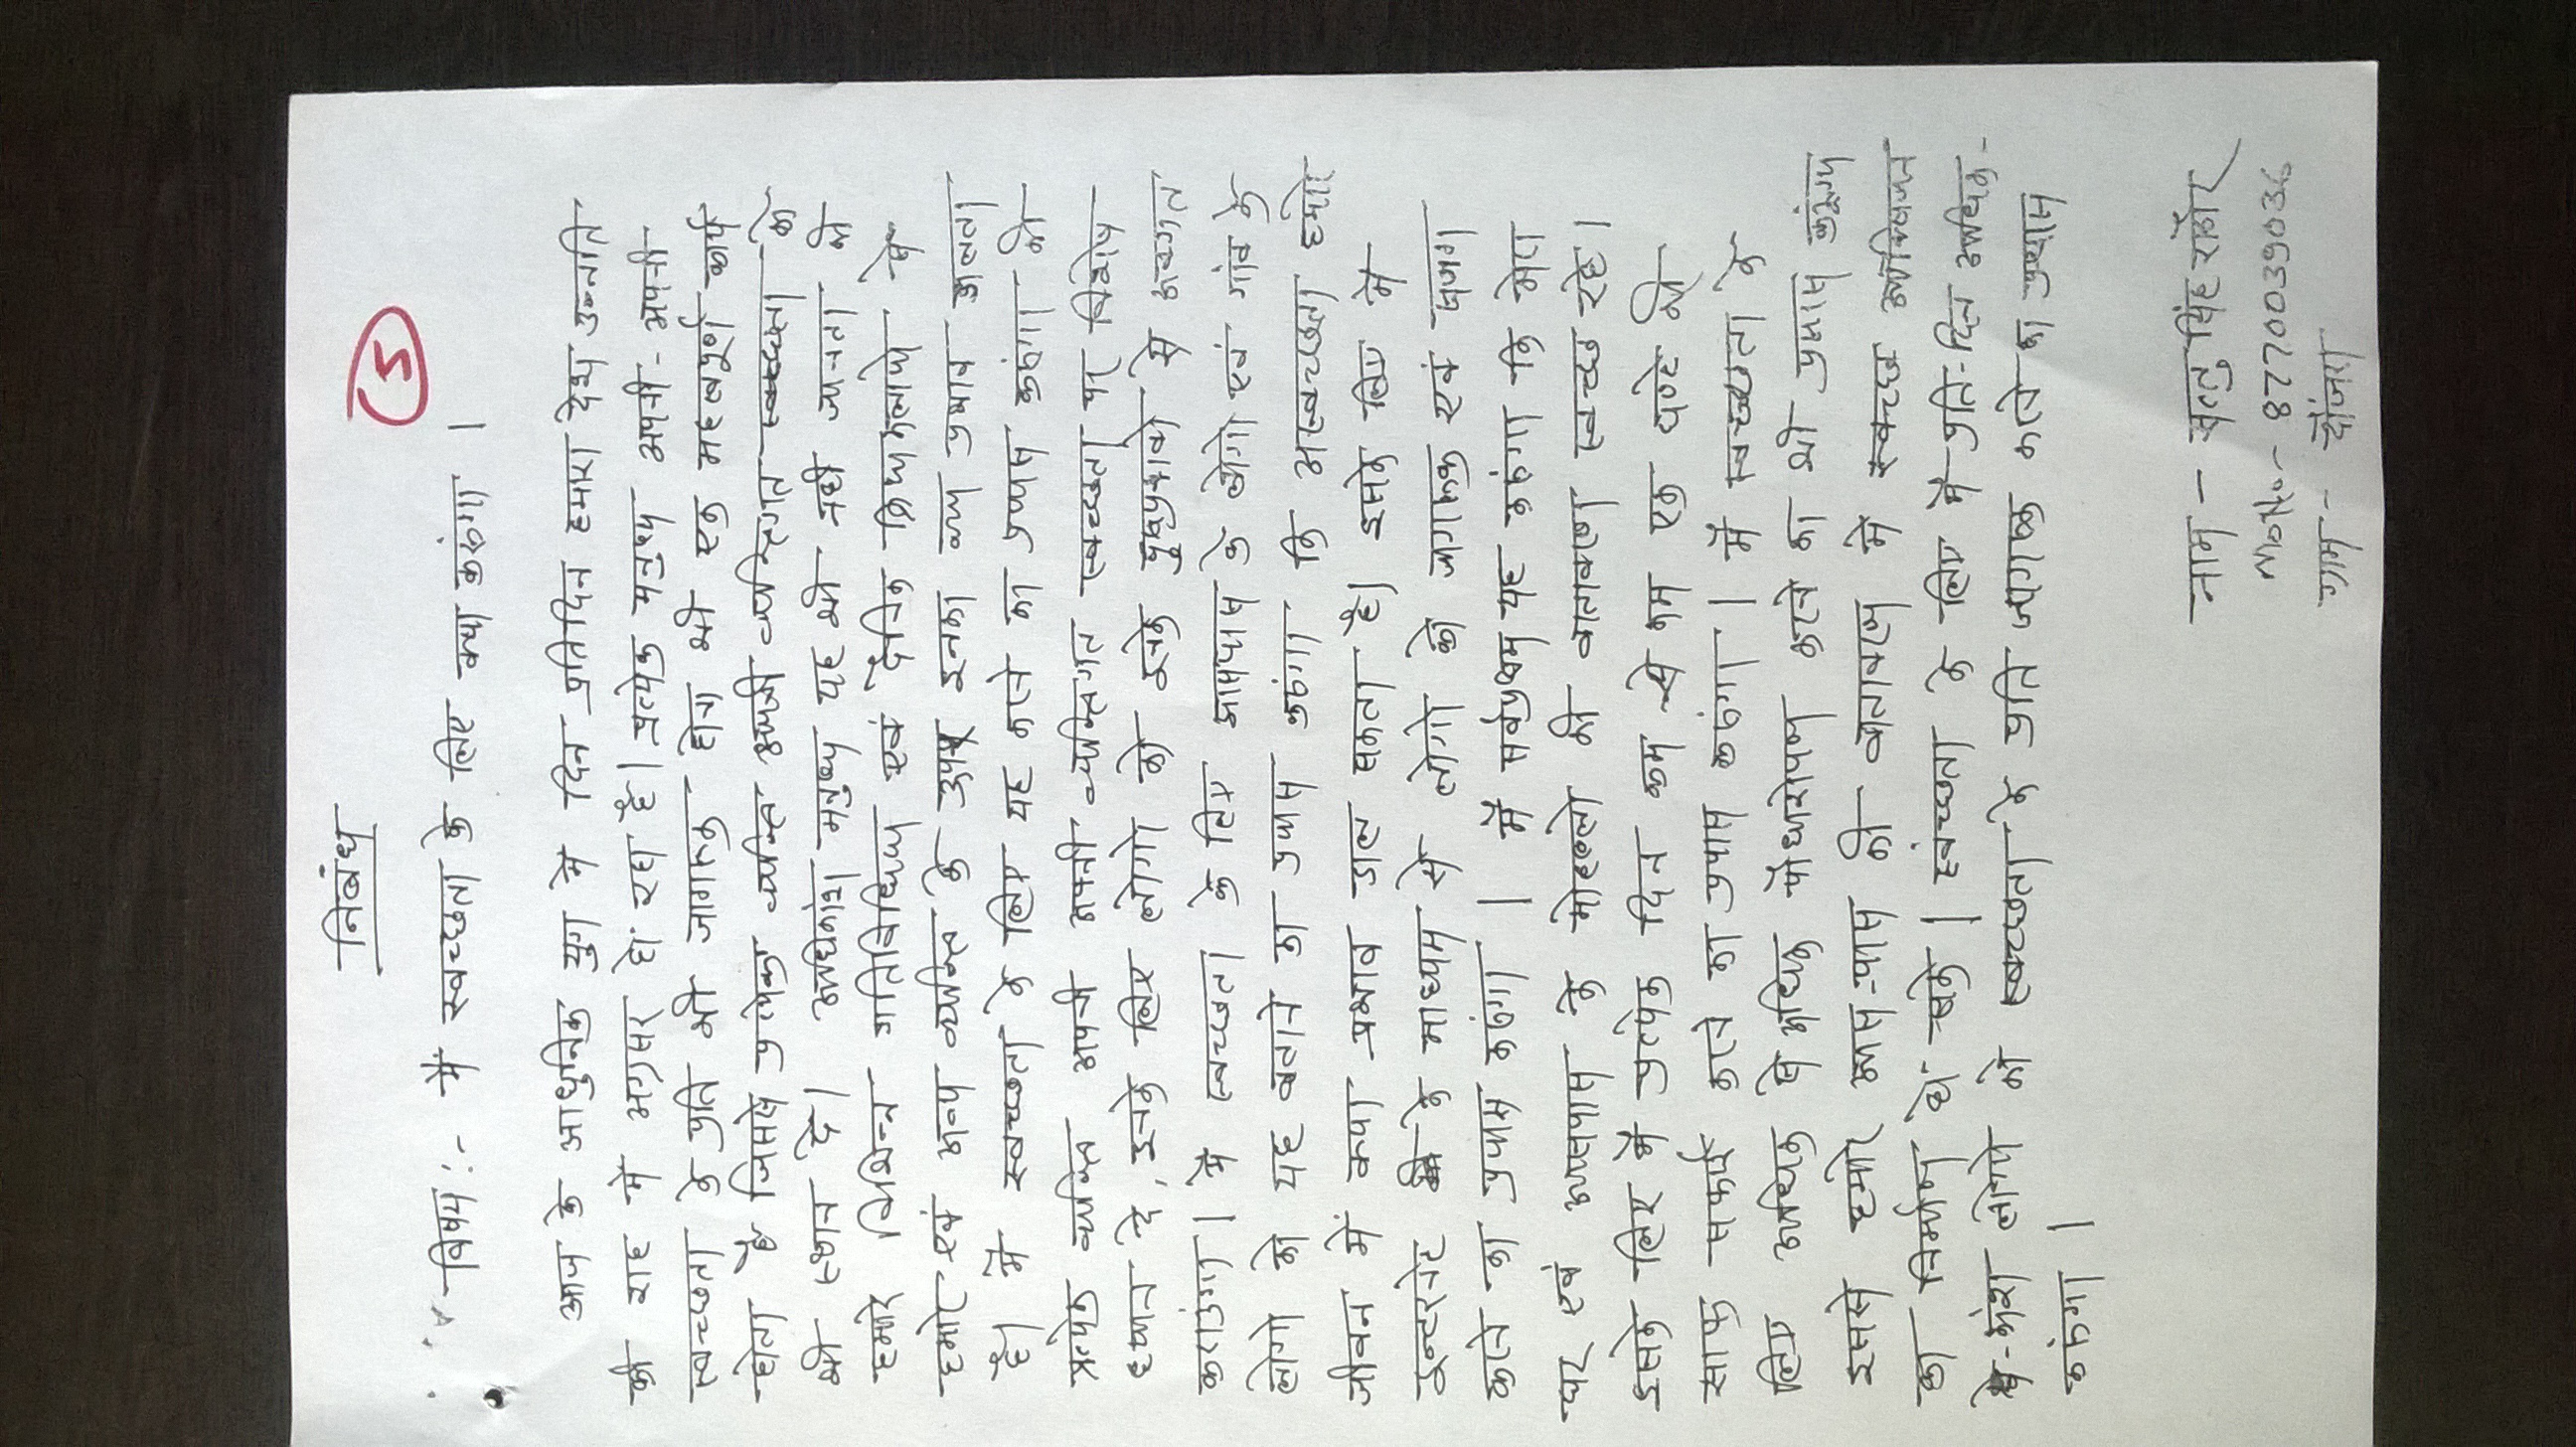 निबंध
5
विषय :- मैं स्वच्छता के लिए क्या करुंगा ।
आज के आधुनिक युग में दिन प्रतिदिन हमारा देश उन्नति
की राह में अग्रसर हो रहा है। प्रत्येक मनुष्य अपनी-अपनी
स्वच्छता के प्रति भी जागरुक होना भी एक महत्वपूर्ण कार्य
होता है जिससे प्रत्येक व्यक्ति अपनी व्यक्तिगत स्वच्छता में
भी ध्यान दे। अधिकांश मनुष्य यह भी नही जानता की
हमारे विभिन्न गतिविधिया एवं दैनिक क्रियाकलापो से
हमारे एवं अन्य व्यक्ति के उपर उनका क्या प्रभाव डालता
है। मैं स्वच्छता के लिए यह करने का प्रयास करुंगा की
प्रत्येक व्यक्ति अपनी अपनी व्यक्तिगत स्वच्छता पर विशेष
ध्यान दे, उनके लिए लोगो को उनके दुष्प्रभावो से अवगत
कराउंगा। मैं स्वच्छता के लिए आसपास के लोगो एवं गांव के
लोगो को यह बताने का प्रयास करुंगा कि अस्वच्छता हमारे
जीवन में क्या प्रभाव डाल सकता है। इसके लिए मै
इन्टरनेट के माध्यम से लोगो को जागरुक एवं सजग
करने का प्रयास करुंगा । मैं सर्वप्रथम यह करुंगा कि मेरा
घर एवं आसपास के मोहल्लो की वातावरण स्वच्छ रहे।
इसके लिए मैं प्रत्येक दिन कम से कम एक घण्टे की
साफ सफाई करने का प्रयास करुंगा । मैं स्वच्छता के
लिए अधिक से अधिक पौधारोपण करने का भी प्रयास करुंगा
इससे हमारे आस-पास की वातावरण मे स्वच्छ ऑक्सिजन
का निर्माण हो सके । स्वच्छता के लिए मै प्रति-दिन अधिक-
से-अधिक लोगो को स्वच्छता के प्रति जागरुक करने का प्रयास
करुंगा ।
नाम - मृत्यु सिंह राठौर
Mob.No. - 8770039036
ग्राम -